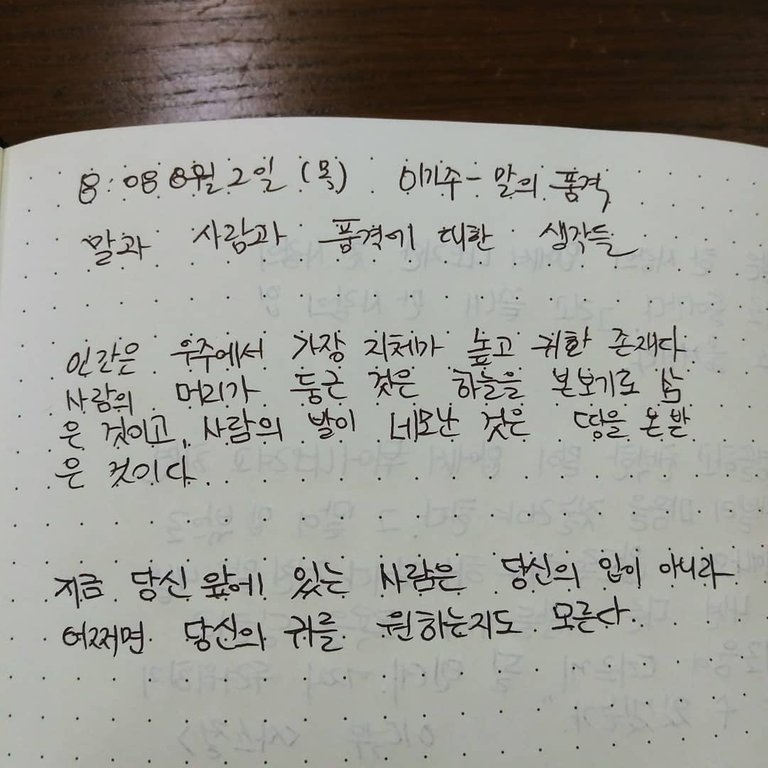 8:08 8월 2일 (목) 이기주 - 말의 품격
말과 사람과 품격에 대한 생각들
인간은 우주에서 가장 지체가 높고 귀한 존재다
사람의 머리가 둥근 것은 하늘을 본보기로 삼
은 것이고, 사람의 발이 네모난 것은 땅을 본받
은 것이다.
지금 당신 앞에 있는 사람은 당신의 입이 아니라
어쩌면 당신의 귀를 원하는지도 모른다.